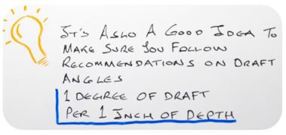 IT'S ALSO A GOOD IDEA TO
MAKE SURE YOU FOLLOW
RECOMMENDATIONS ON DRAFT
ANGLES
1 DEGREE OF DRAFT
PER 1 INCH OF DEPTH